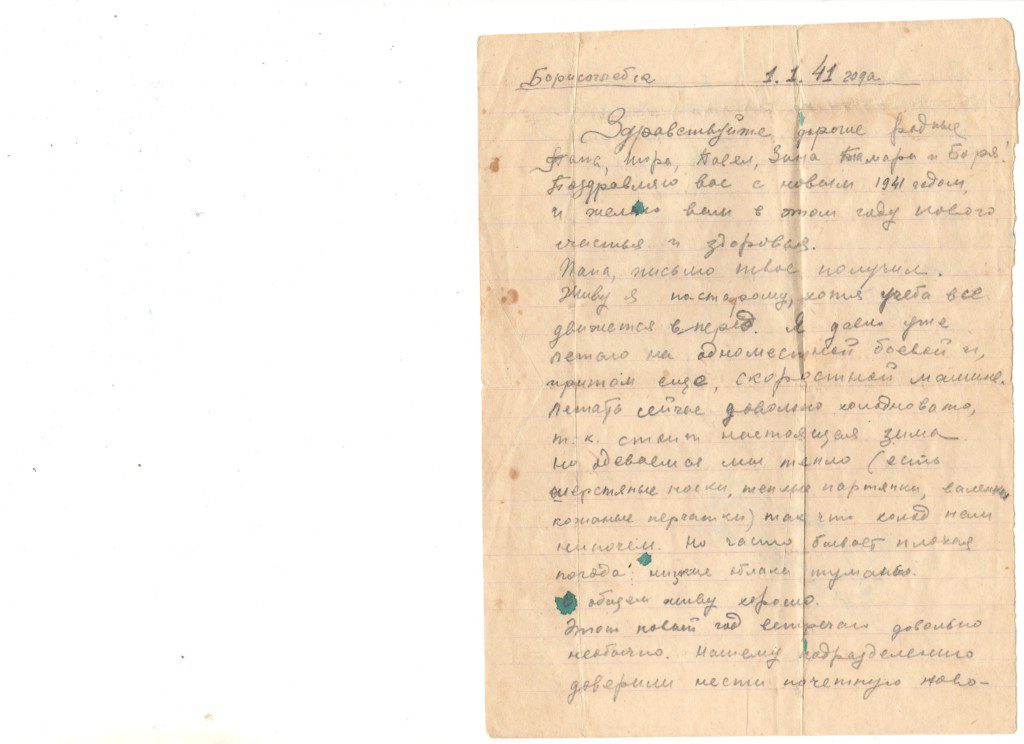 Борисоглебск 1. 1. 41 года
Здравствуйте, дорогие родные
Папа, Шура, Павел, Зина Тамара и Боря!
Поздравляю вас с новым 1941 годом,
и желаю вам в этом году нового
счастья и здоровья.
Папа, письмо твое получил.
Живу я постарому, хотя учеба все
движется вперед. Я давно уже
летаю на одноместной боевой и,
притом еще, скоростной машине.
Летать сейчас довольно холодновато,
т. к. стоит настоящая зима
но одеваемся мы тепло (есть
шерстяные носки, теплые партянки, валенки
кожаные перчатки) так что холод нам
нипочем. Но часто бывает плохая
погода: низкие облака туманы.
В общем живу хорошо.
Этот новый год встречаю довольно
необычно. Нашему подразделению
доверили нести почетную ново-